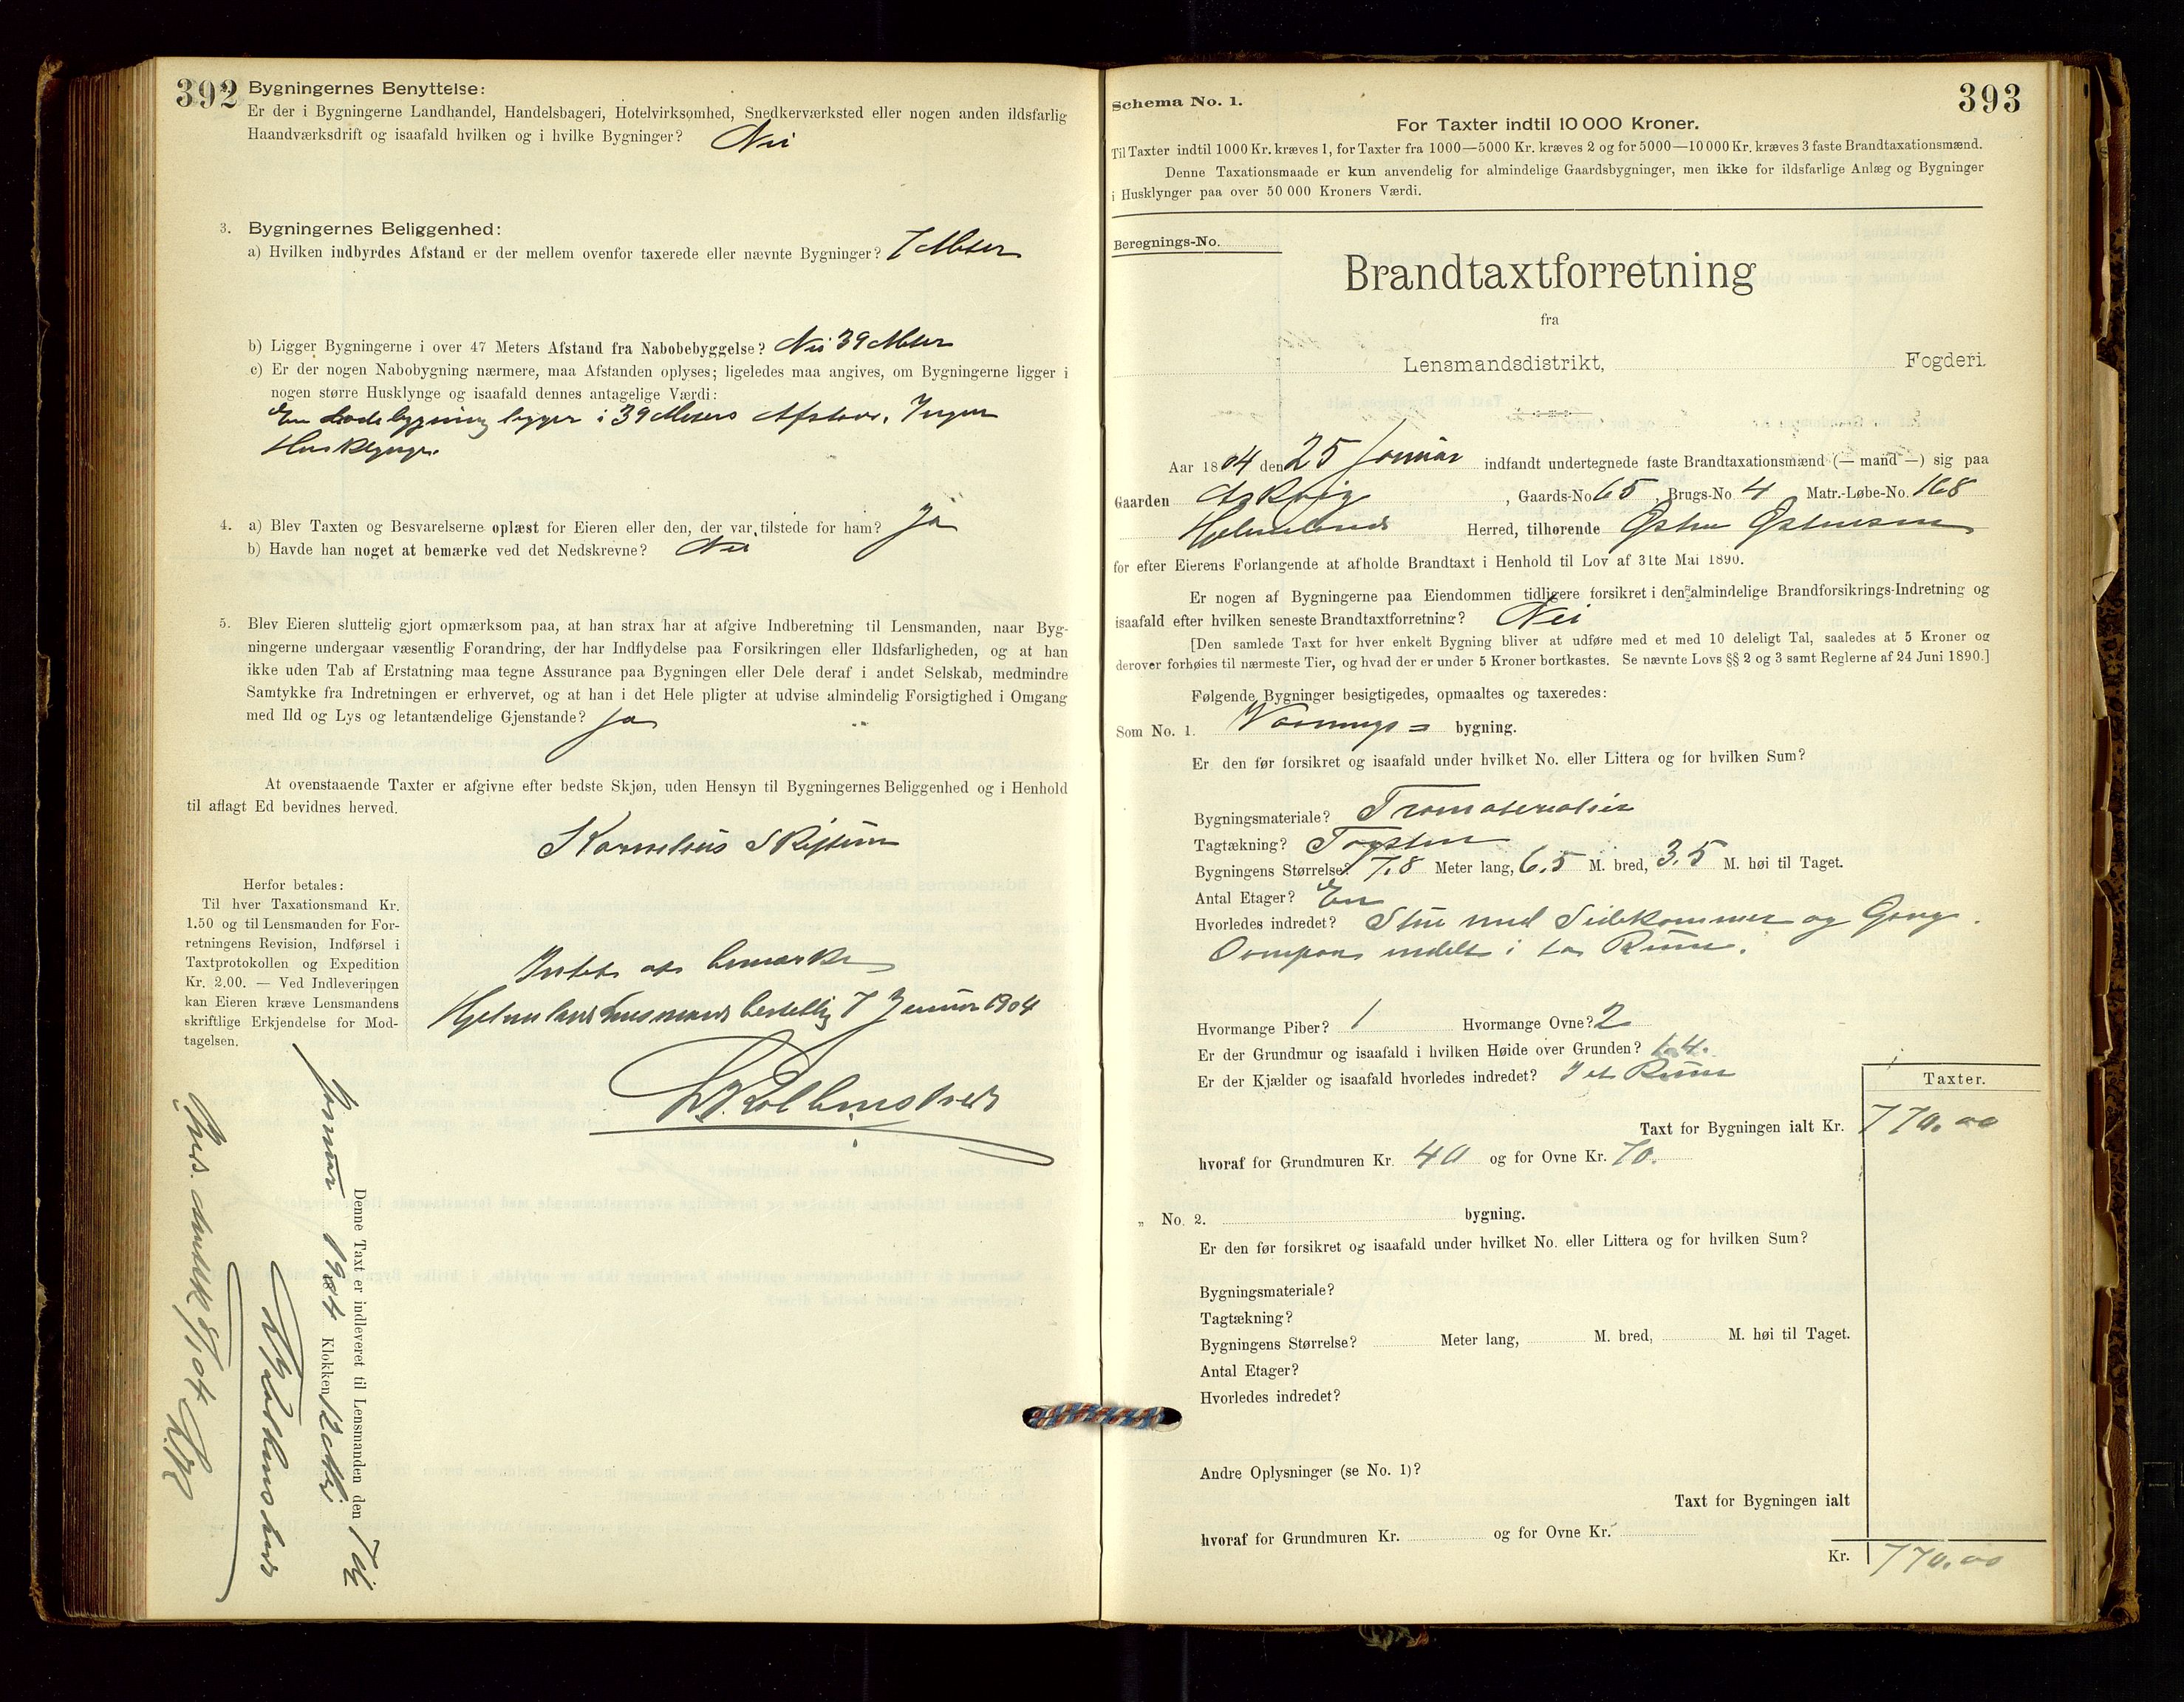 392
Bygningernes Benyttelse:
Er der i Bygningerne Landhandel, Handelsbageri, Hotelvirksomhed, Snedkerværksted eller nogen anden ildsfarlig
Haandværksdrift og isaafald hvilken og i hvilke Bygninger? Nei
3. Bygningernes Beliggenhed:
a) Hvilken indbyrdes Afstand er der mellem ovenfor taxerede eller nævnte Bygninger? 7 Meter
b) Ligger Bygningerne i over 47 Meters Afstand fra Nabobebyggelse? Nei 39 Meter
c) Er der nogen Nabobygning nærmere, maa Afstanden oplyses; ligeledes maa angives, om Bygningerne ligger i
nogen større Husklynge og isaafald dennes antagelige Værdi:
En Ladebygning ligger i 39 Meters Afstand. Ingen
Husklynge.
4. a) Blev Taxten og Besvarelserne oplæst for Eieren eller den, der var tilstede for ham? Ja
b) Havde han noget at bemærke ved det Nedskrevne? Nei
5. Blev Eieren sluttelig gjort opmærksom paa, at han strax har at afgive Indberetning til Lensmanden, naar Byg-
ningerne undergaar væsentlig Forandring, der har Indflydelse paa Forsikringen eller Ildsfarligheden, og at han
ikke uden Tab af Erstatning maa tegne Assurance paa Bygningen eller Dele deraf i andet Selskab, medmindre
Samtykke fra Indretningen er erhvervet, og at han i det Hele pligter at udvise almindelig Forsigtighed i Omgang
med Ild og Lys og letantændelige Gjenstande? Ja
At ovenstaaende Taxter er afgivne efter bedste Skjøn, uden Hensyn til Bygningernes Beliggenhed og i Henhold
til aflagt Ed bevidnes herved.
Kornelius Skiftun
Herfor betales:
Til hver Taxationsmand Kr.
1.50 og til Lensmanden for For-
retningens Revision, Indførsel i
Taxtprotokollen og Expedition
Kr. 2.00. — Ved Indleveringen
kan Eieren kræve Lensmandens
skriftlige Erkjendelse for Mod-
tagelsen.
Intet at bemærke
Hjelmelands Lensmandsbestilling 7 Januar 1904
Denne Taxt er indleveret til Lensmanden den 7de
Januar 1904 Klokken 12
8/1 04
393
Schema No. 1.
For Taxter indtil 10 000 Kroner.
Til Taxter indtil 1000 Kr. kræves 1, for Taxter fra 1000—5000 Kr. kræves 2 og for 5000—10 000 Kr. kræves 3 faste Brandtaxationsmænd.
Denne Taxationsmaade er kun anvendelig for almindelige Gaardsbygninger, men ikke for ildsfarlige Anlæg og Bygninger
i Husklynger paa over 50 000 Kroners Værdi.
Beregnings-No.
Brandtaxtforretning
fra
Lensmandsdistrikt, Fogderi.
Aar 1804 den 25 Januar indfandt undertegnede faste Brandtaxationsmænd (— mand —) sig paa
Gaarden Askvig, Gaards-No 65, Brugs-No 4 Matr.-Løbe-No. 168
Hjelmelands Herred, tilhørende Østen Østensen
for efter Eierens Forlangende at afholde Brandtaxt i Henhold til Lov af 31te Mai 1890.
Er nogen af Bygningerne paa Eiendommen tidligere forsikret i den almindelige Brandforsikrings-Indretning og
isaafald efter hvilken seneste Brandtaxtforretning? Nei
[Den samlede Taxt for hver enkelt Bygning bliver at udføre med et med 10 deleligt Tal, saaledes at 5 Kroner og
derover forhøies til nærmeste Tier, og hvad der er under 5 Kroner bortkastes. Se nævnte Lovs §§ 2 og 3 samt Reglerne af 24 Juni 1890.]
Følgende Bygninger besigtigedes, opmaaltes og taxeredes:
Som No. 1. Vaanings= bygning.
Er den før forsikret og isaafald under hvilket No. eller Littera og for hvilken Sum?
Bygningsmateriale? Træmaterialier
Tagtækning? Tagsten
Bygningens Størrelse? 7.8 Meter lang, 6.5 M. bred, 3.5 M. høi til Taget.
Antal Etager? En
Hvorledes indredet? Stue med Sidekammer og Gang.
Ovenpaa indelt i to Rum.
Hvormange Piber? 1 Hvormange Ovne? 2
Er der Grundmur og isaafald i hvilken Høide over Grunden? 1.4.
Er der Kjælder og isaafald hvorledes indredet? I et Rum
Taxter.
Taxt for Bygningen ialt Kr. 770.00
hvoraf for Grundmuren Kr. 40 og for Ovne Kr. 70.
„ No. 2. bygning.
Er den før forsikret og isaafald under hvilket No. eller Littera og for hvilken Sum?
Bygningsmateriale?
Tagtækning?
Bygningens Størrelse? Meter lang, M. bred, M. høi til Taget.
Antal Etager?
Hvorledes indredet?
Andre Oplysninger (se No. 1)?
Taxt for Bygningen ialt
hvoraf for Grundmuren Kr. og for Ovne Kr.
Kr. 770.00